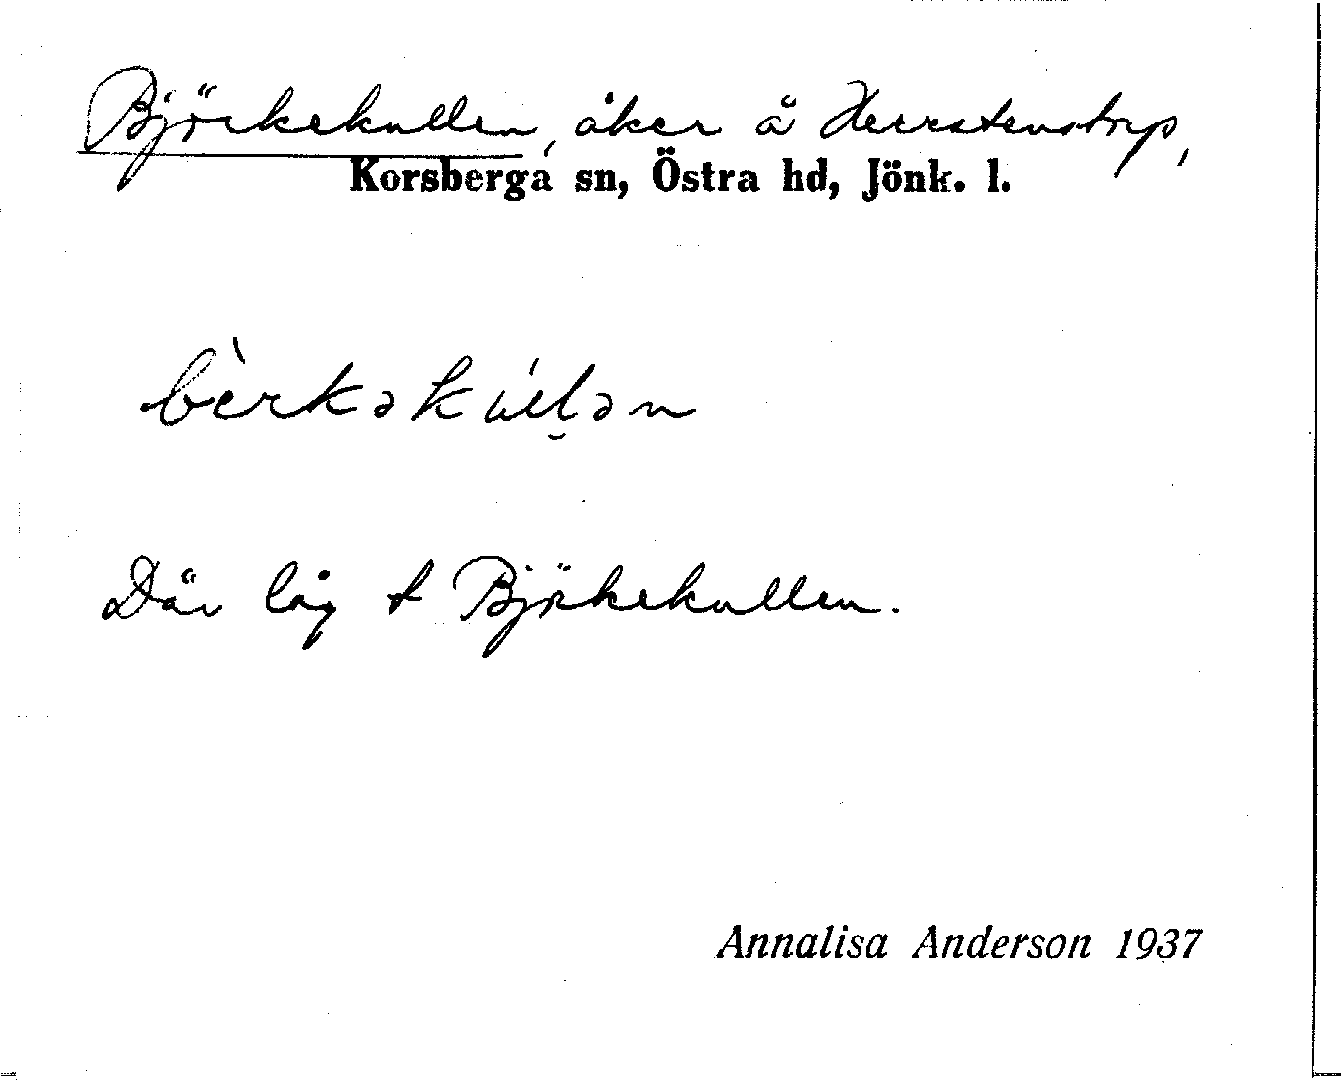 Björkekullen, åker å Herrstenstorp,
Korsberga sn, Östra hd, Jönk. l.
bèrkəkúlən
Där låg † Björkekullen.
Annalisa Anderson 1937